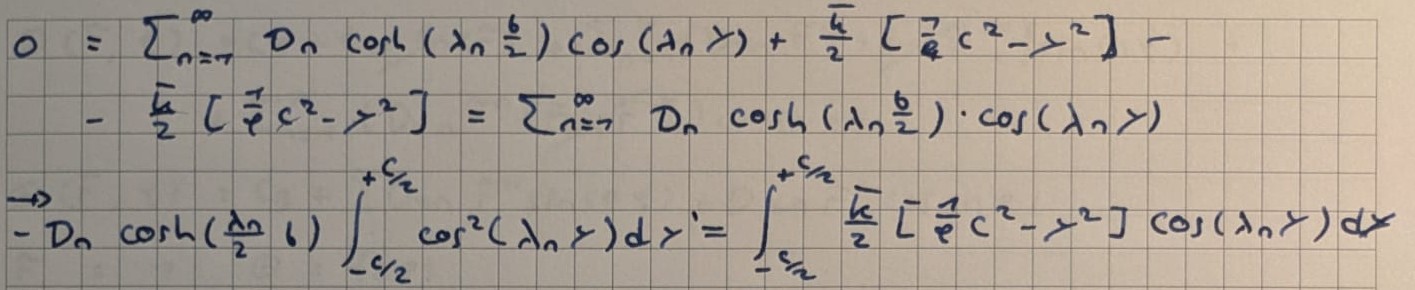 0 = ∑_{n=1}^{∞} Dn cosh(λn b/2) cos(λn y) + k̄/2 [1/4 c² - y²] -
- k̄/2 [1/4 c² - y²] = ∑_{n=1}^{∞} Dn cosh(λn b/2) · cos(λn y)
→
- Dn cosh(λn/2 b) ∫_{-c/2}^{+c/2} cos²(λn y) dy = ∫_{-c/2}^{+c/2} k̄/2 [1/4 c² - y²] cos(λn y) dy